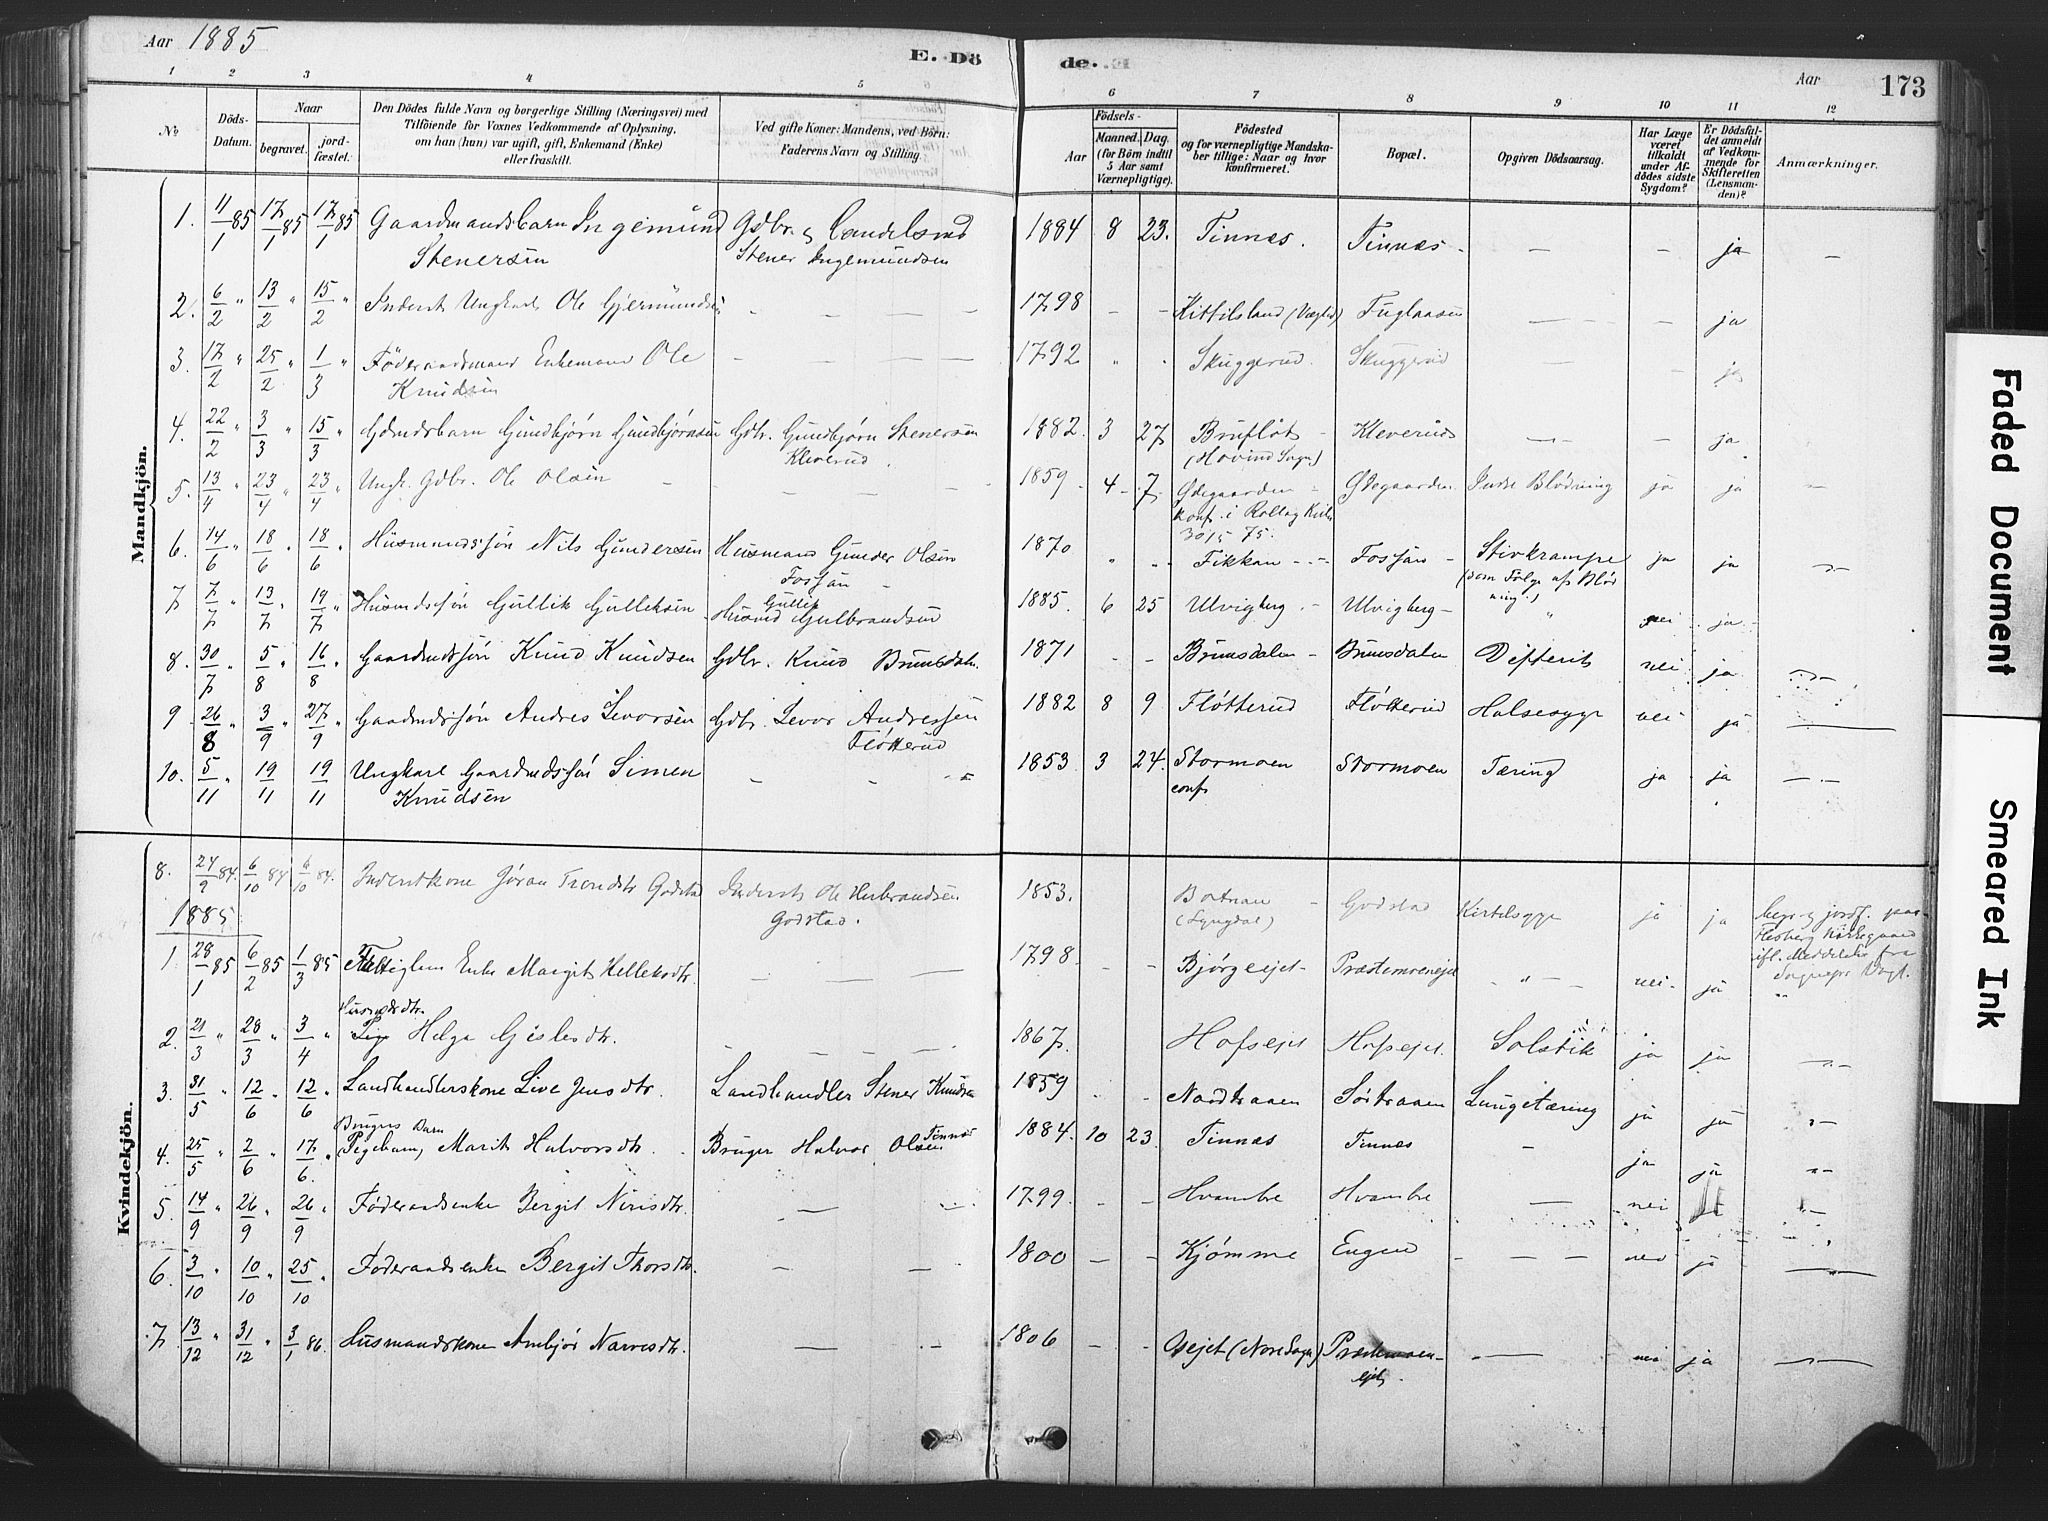 Aar 1885 E. Dö de. Aar 173
1 2 3 4 5 6 7 8 9 10 11 12
No
Döds-Datum.
Naar begravet. jordfæstet.
Den Dödes fulde Navn og borgerlige Stilling (Næringsvei) med
Tilföiende for Voxnes Vedkommende af Oplysning,
om han (hun) var ugift, gift, Enkemand (Enke)
eller fraskilt.
Ved gifte Koner: Mandens, ved Börn:
Faderens Navn og Stilling.
Födsels-
Aar Manned. Dag.
(for Börn indtil 5 Aar samt Værnepligtige).
Födested
og for værnepligtige Mandskaber tillige: Naar og hvor konfirmeret.
Bopæl.
Opgiven Dödsaarsag.
Har Læge været tilkaldt under Afdödes sidste Sygdom?
Er Dödsfaldet anmeldt af Vedkommende for Skifteretten (Lensmanden)?
Anmærkninger.
Mandkjön.
1. 11/1 85 17/1 85 17/1 85 Gaardmandsbarn Ingemund Gdbr. og Handelsmd 1884 8 23. Tinnes. Tinnes - — - ja
Stenersen Stener Ingemundsen
2. 6/2 " 13/2 " 15/2 " Inderst Ungkarl Ole Gjermundsen 1798 - - Kittilsland (Vægli) Fuglaasen — - ja
3. 17/2 " 25/2 " 1/3 " Föderaadsmand Enkemand Ole 1792 " " Skuggerud. Skuggerud — - ja
Knudsen
4. 22/2 " 3/3 " 15/3 " Gdmdsbarn Gundbjørn Gundbjørnsen Gdbr. Gundbjørn Stenersen 1882. 3 27 Bruflöt Kleverud — - ja
Kleverud. (Hovind Sogn)
5. 13/4 " 23/4 " 23/4 " Ungk. Gdbr. Ole Olsen 1859 4 7. Ødegaarden Ødegaarden Indre Blödning ja ja
konf. i Rollag Kirke
75.
6. 14/6 " 18/6 " 18/6 " Husmandssøn Nils Gundersen Husmand Gunder Olsen 1870 " " Fikkan Fosjan - Stivkrampe ja ja
Fosjan (som Følge af Blødning.)
7 7/7 " 13/7 " 19/7 " Husmdssøn Gullik Gulleksen Husmd Gullik Gulbrandsen 1885. 6 25 Ulvigberg. - Ulvigberg - " nei ja
8. 30/7 " 5/8 " 16/8 " Gaardmdssøn Knud Knudsen Gdbr. Knud Brunsdalen 1871 - - Brunsdalen - Brunsdalen Difterit nei ja
9 26/8 " 3/9 " 27/9 " Gaardmdssøn Andres Levorsen Gdbr. Levor Andressen 1882 8 9 Fløtterud Fløtterud Halsesyge nei ja
Fløtterud
10. 5/11 " 19/11 19/11 Ungkarl Gaardmdssøn Simen 1853 3 24. Stormoen Stormoen Tæring ja ja
Knudsen conf
Kvindekjön.
8. 24/9 84. 6/10 84 6/10 84. Inderstkone Jøran Trondsdtr Godstad Inderst Ole Herbrandsen 1853. Botnan - Godstad Kirtelsyge ja ja begr. og jordf. paa
Godstad. (Lyngdal) Flesberg Kirkegaard
1885 ifl. Meddelelse fra
Sognepr. Vogt.
1 28/1 85 6/2 85 1/3 85 Fattiglem Enke Margit Kelleksdtr. 1798. - - Bjørgeejet - Præstemoeejet - " - nei. ja
Husmdsdtr.
2. 21/3 " 28/3 " 3/4 " Pige Helga Gislesdtr. 1867. Hofsejet Hofsejet. Solstik ja ja
3. 31/5 " 12/6 " 12/6 " Landhandlerskone Live Jensdtr. Landhandler Stener Knudsen 1859 - - Nordtraaen Sörtraaen Lungetæring ja ja
Brugers Barn
4. 25/5 " 2/6 " 17/6. " Pigebarn, Marit Halvorsdtr. Bruger Halvor Olsen Tinnes 1884. 10 23 Tinnes Tinnes - ja ja
5. 14/9 " 26/9 " 26/9 " Föderaadsenke Bergit Nirisdtr. 1799. - - Hvambre Hvambre — nei ja
6. 3/10 " 10/10 " 25/10 " Föderaadsenke Bergit Thorsdtr. 1800 - - Kjømme Engen - nei ja
7. 13/12 " 31/12 " 3/1 86. Husmandskone Ambjør Narvesdtr. 1806 - - ejet (Nore Sogn) Præstemoen- — nei ja
ejet.
Faded Document
Smeared Ink